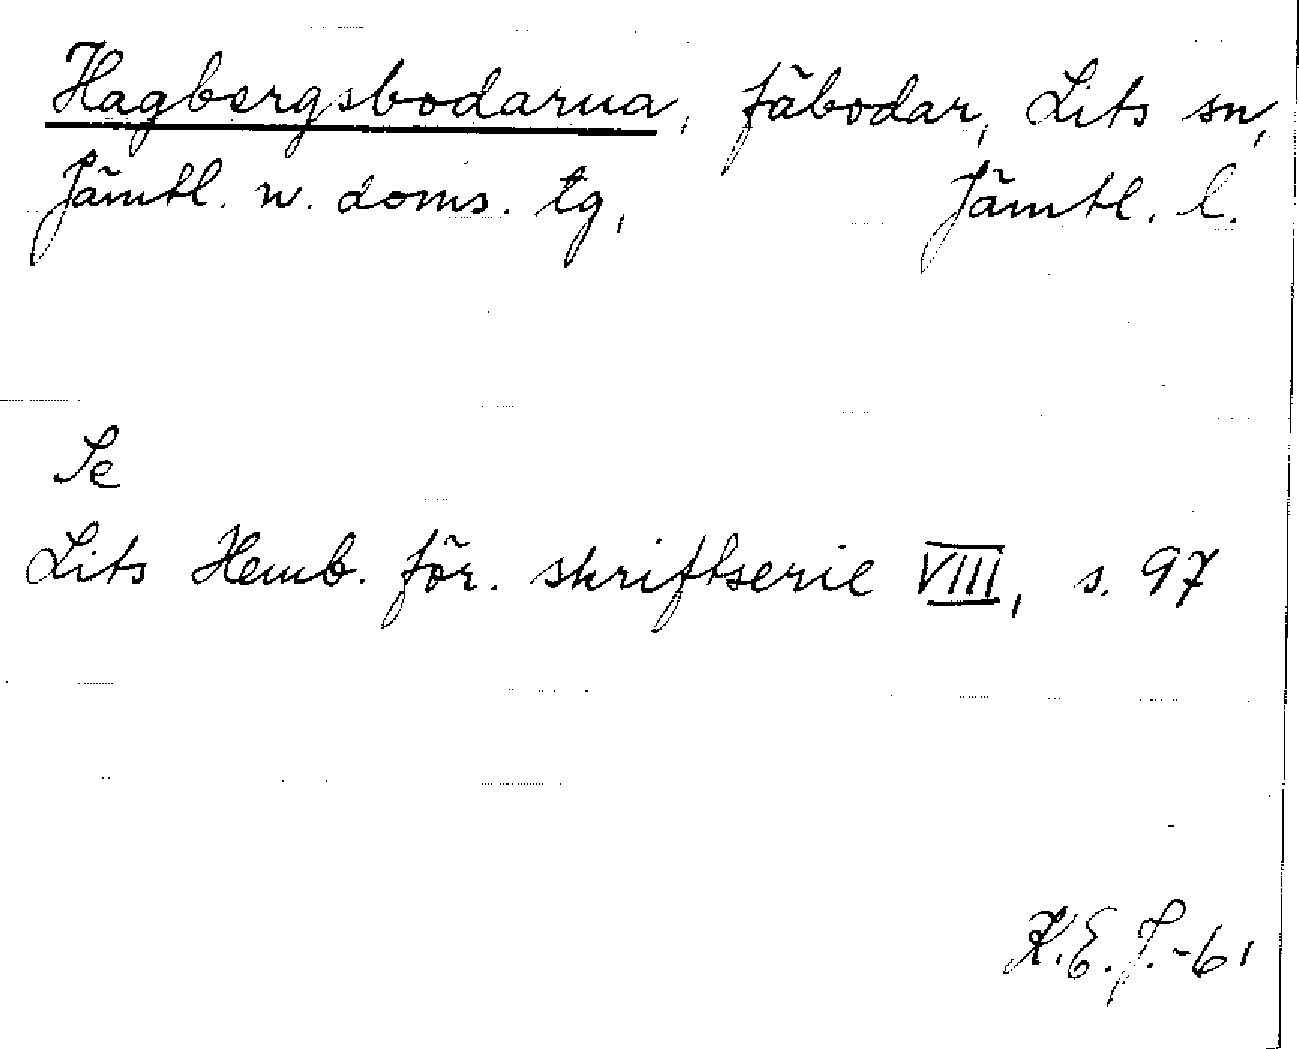 Hagbergsbodarna, fäbodar, Lits sn,
Jämtl. n. doms. tg, Jämtl. l.
Se
Lits Hemb. för. skriftserie VIII, s. 97
K.E.J.-61